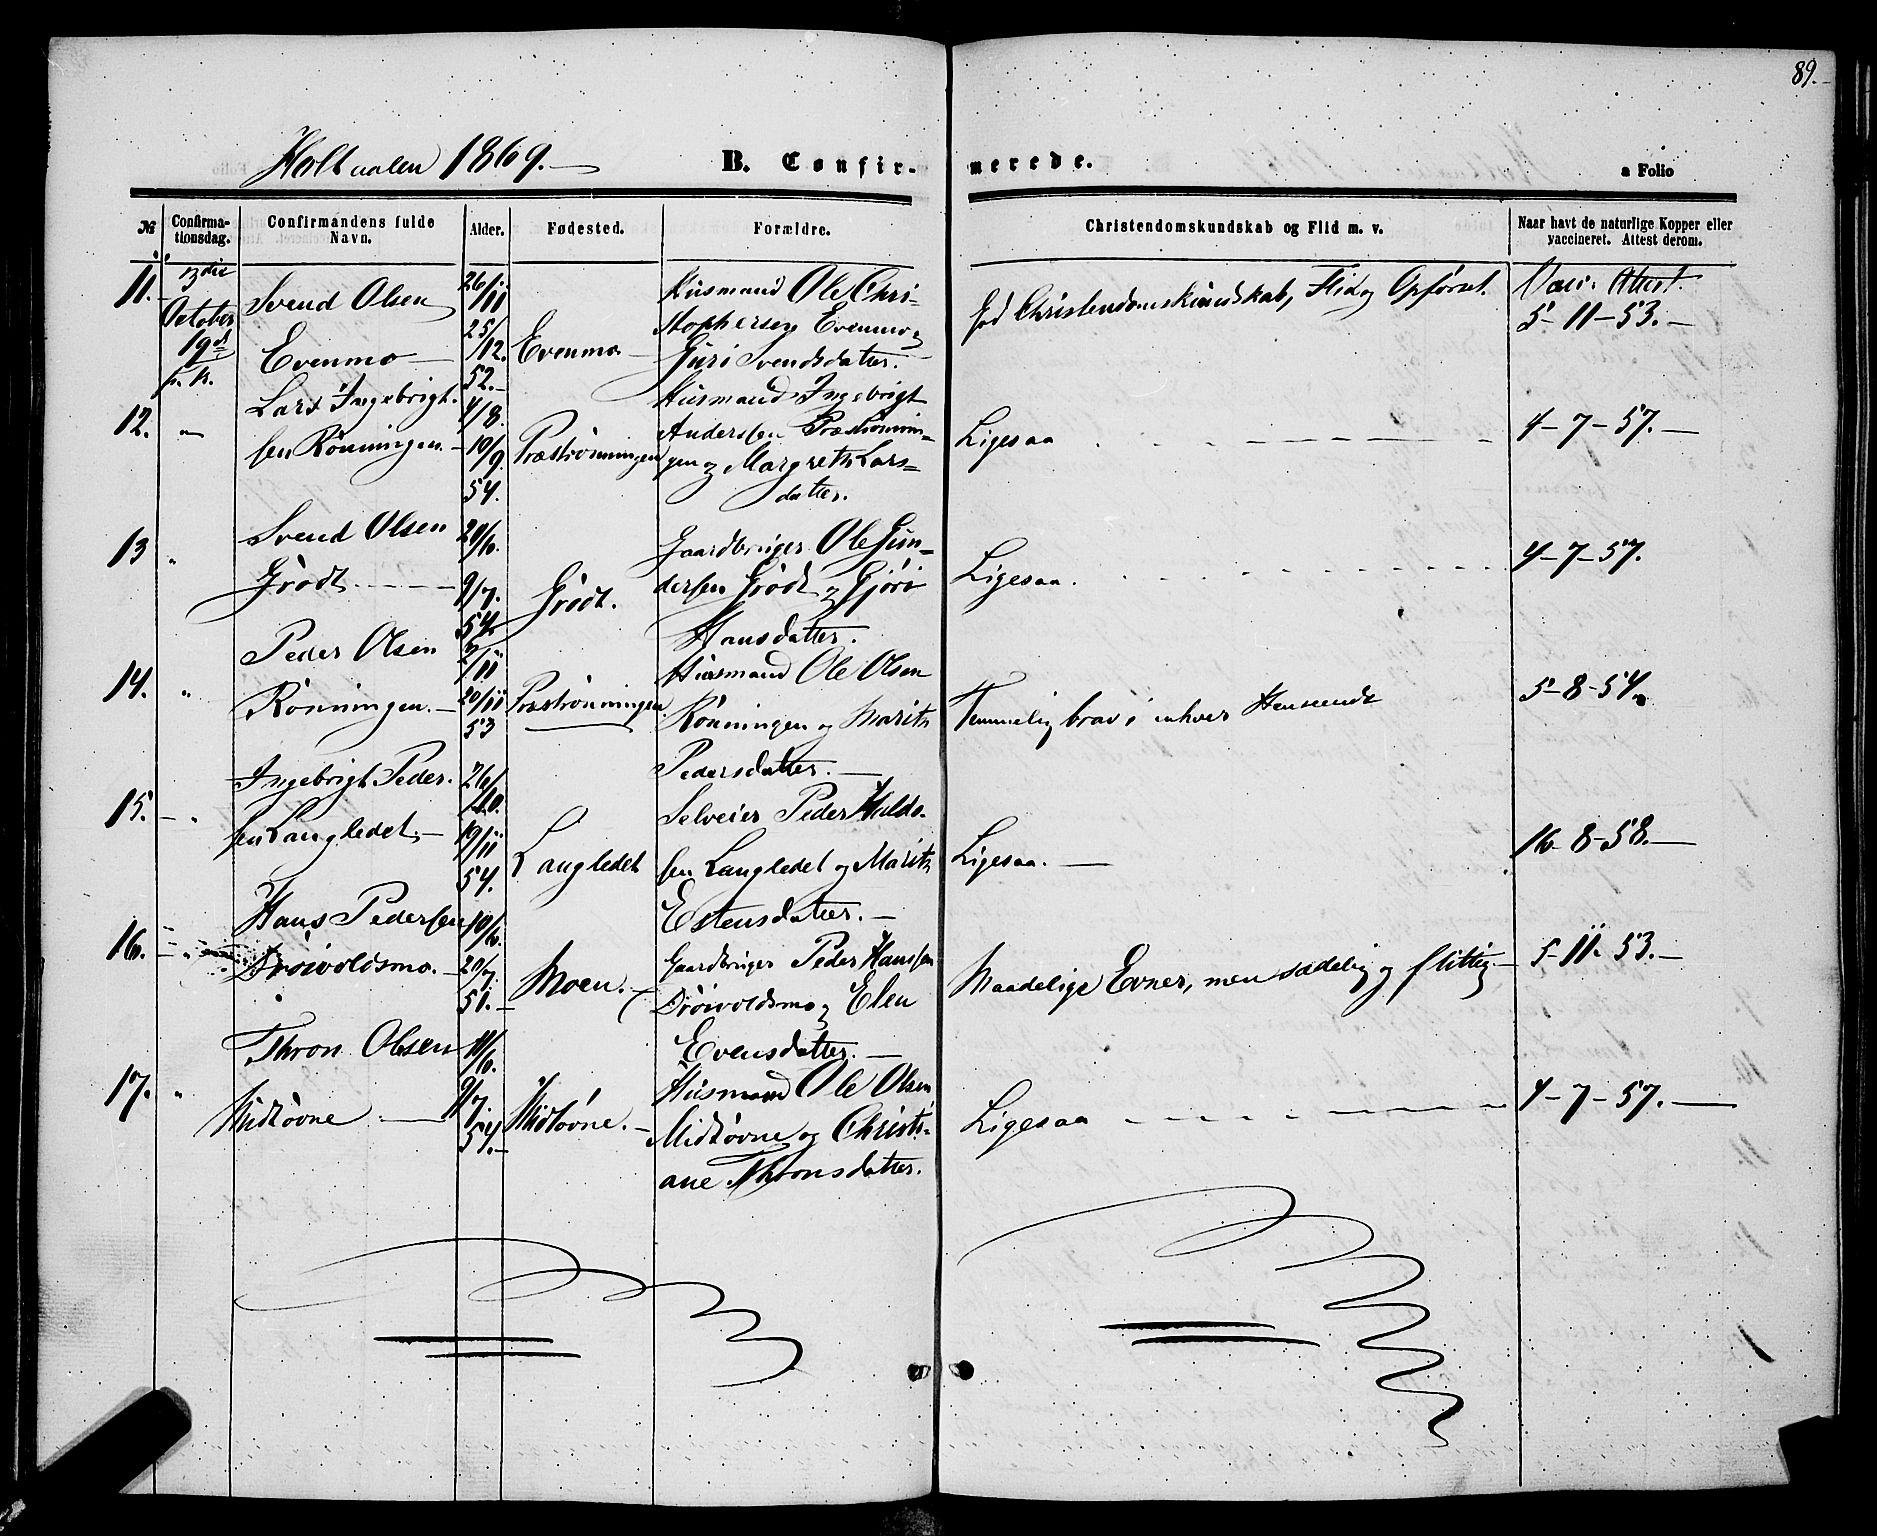 89.
Holtaalen 1869.
B. Confir-
merede.
a Folio
№
Confirma-
tionsdag.
Confirmandens fulde
Navn.
Alder.
Fødested.
Forældre.
Christendomskundskab og Flid m. v.
Naar havt de naturlige Kopper eller
vaccineret. Attest derom.
11.
October
19de
p. k.
Svend Olsen
Evenmo
26/11
25/12.
52.
Evenmo
Husmand Ole Chri-
stophersen Evenmo og
Guri Svendsdatter.
god Christendomskundskab, Flid og Opførsel.
Vacc. Attest.
5-11-53.
12.
"
Lars Ingebrigt-
sen Rønningen.
4/8.
10/9.
54.
Præstrønningen
Husmand Ingebrigt
Andersen Præstrønnin-
gen og Margrethe Lars-
datter.
Ligesaa
4-7-57.
13
"
Svend Olsen
Grødt
20/6.
9/7.
54.
Grødt.
Gaardbruger Ole Gun-
dersen Grødt og Gjøri
Hansdatter.
Ligesaa.
4-7-57.
14.
"
Peder Olsen
Rønningen.
2/11
20/11
53
Præstrønningen
Husmand Ole Olsen
Rønningen og Marith
Pedersdatter.
Temmelig brav i enhver Henseende
5-8-54.
15.
"
Ingebrigt Peder-
sen Langledet.
26/10.
19/11
54.
Langledet
Selveier Peder Halds-
sen Langledet og Marith
Estensdatter.
Ligesaa.
16-8-58.
16.
"
Hans Pedersen
Drøivoldsmo.
10/6.
20/7.
51.
Moen.
Gaardbruger Peder Hansen
Drøivoldsmo og Elen
Evensdatter.
Maadelige Evner, men sædelig og flittig
5-11-53.
17.
"
Thron Olsen
Midtøvne
11/6.
9/7.
54.
Midtøvne.
Husmand Ole Olsen
Midtøvne og Christi-
ane Thronsdatter.
Ligesaa
4-7-57.